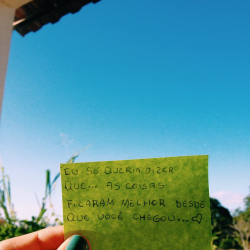 EU SÓ QUERIA DIZER
QUE... AS COISAS
FICARAM MELHOR DESDE
QUE VOCÊ CHEGOU...